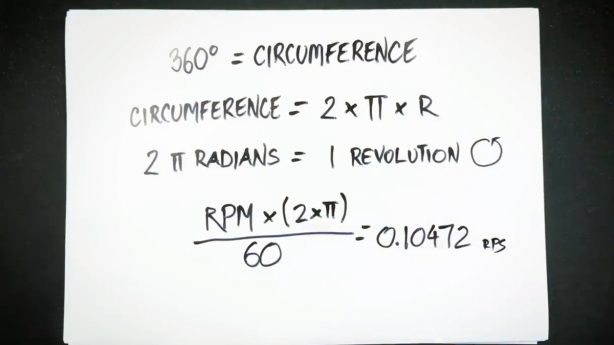 360° = CIRCUMFERENCE
CIRCUMFERENCE = 2 × π × R
2 π RADIANS = 1 REVOLUTION ↺
RPM × (2×π)
60
= 0.10472 RPS